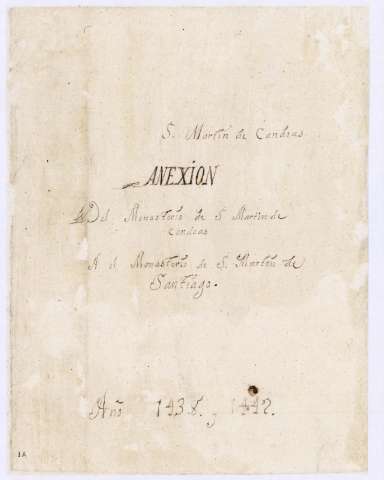 S. Martin de Candoas
ANEXION
Del Monasterio de S. Martin de
Candoas
A el Monasterio de S. Martin de
Santiago.
Años 1438. y 1442.
1A